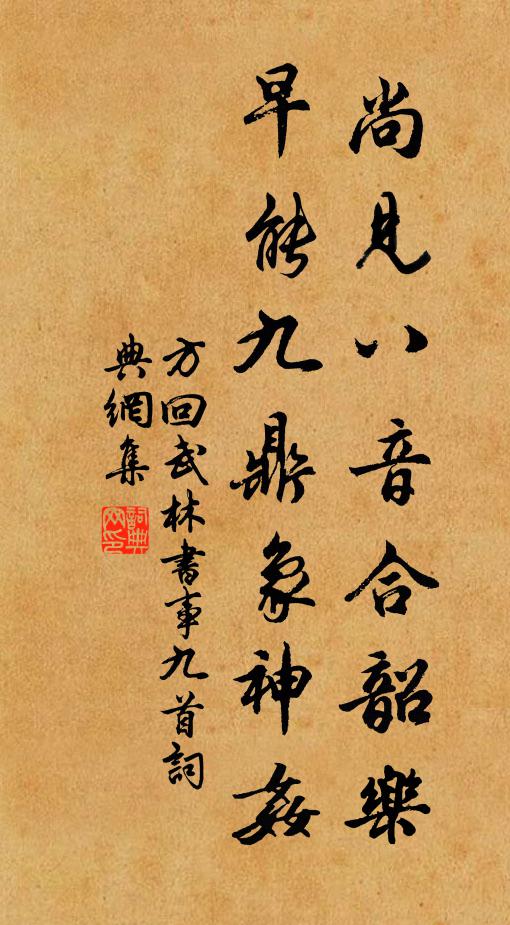 尚見八音合韶樂
早能九鼎象神姦
方回武林書事九首詞
典網集
詞典網印